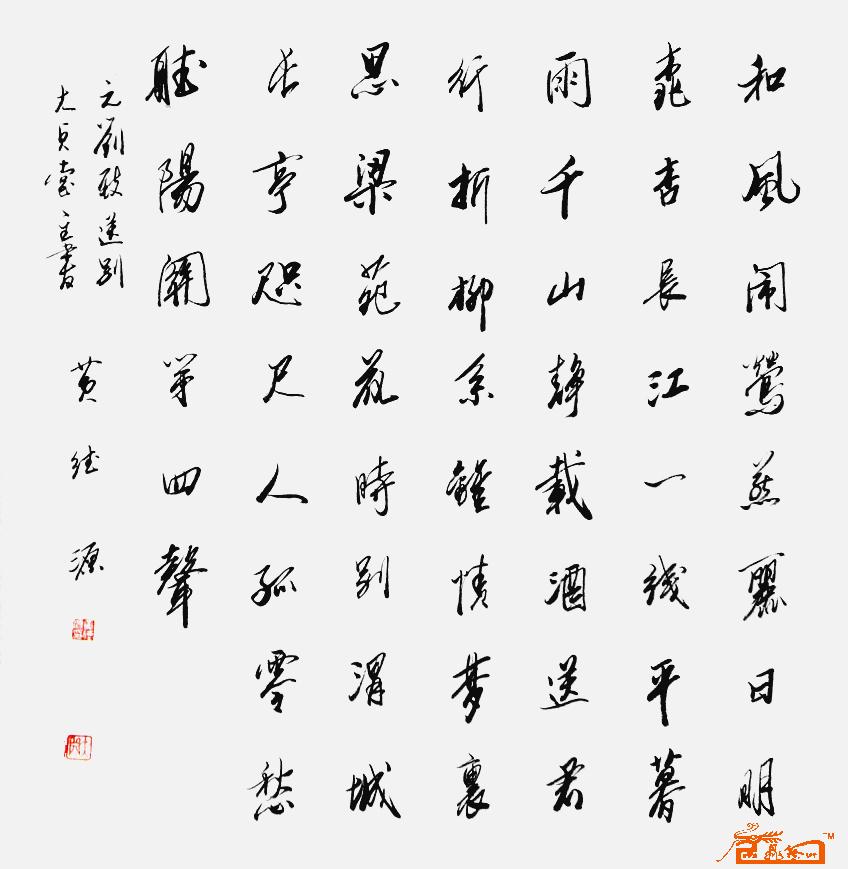 和風闹鶯燕麗日明
桃杏長江一线平暮
雨千山静載酒送君
行折柳系離情夢裏
思梁苑花時別渭城
长亭咫尺人孤零愁
聽陽関第四聲
元劉致送别
大貞堂主書
黄继源